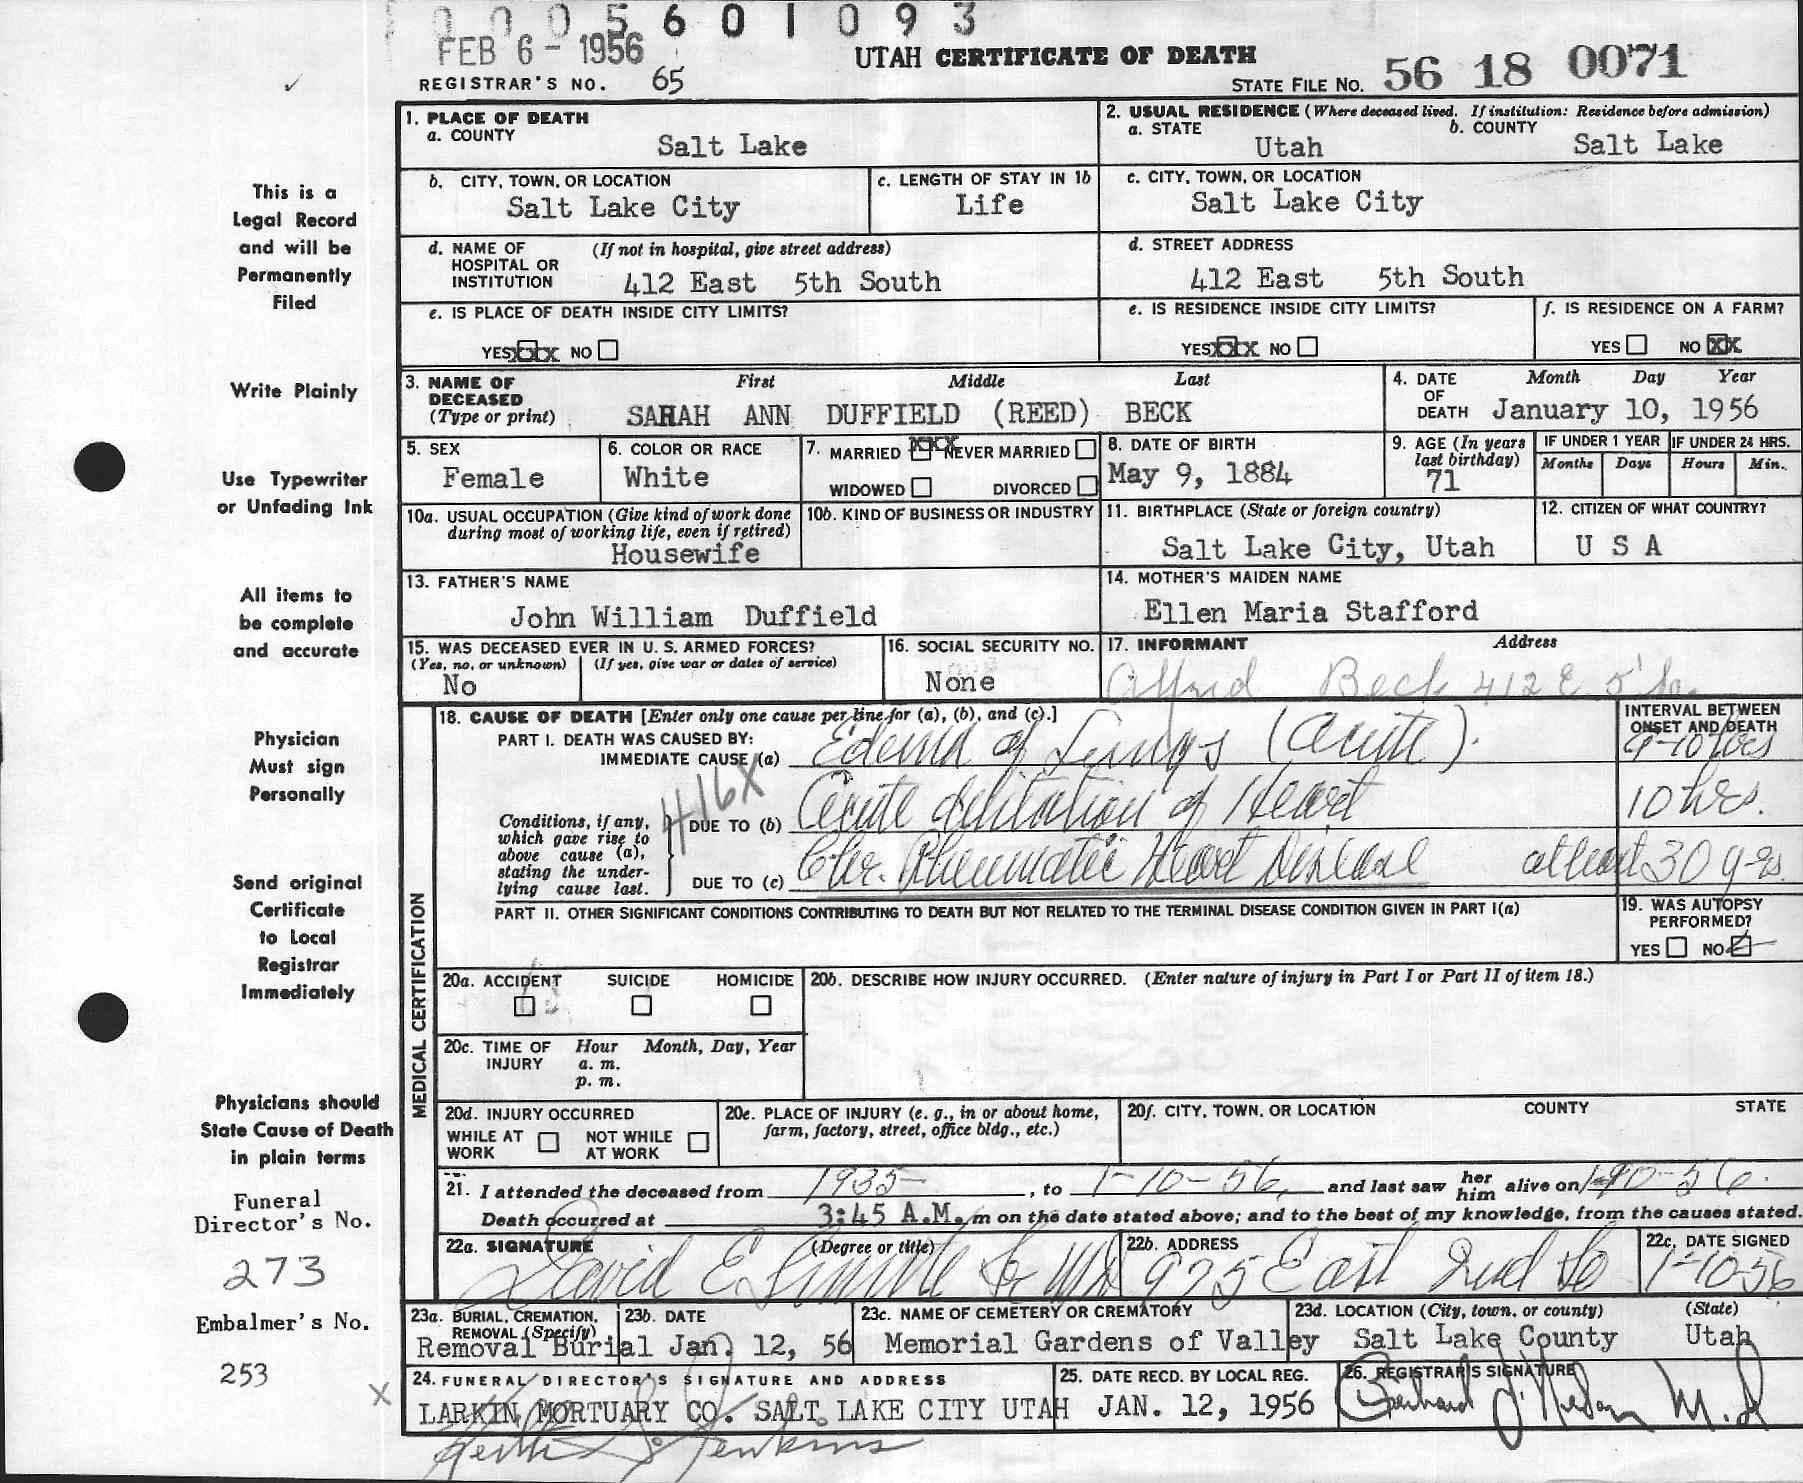 0005601093
FEB 6 - 1956
UTAH CERTIFICATE OF DEATH
REGISTRAR'S NO. 65
STATE FILE NO. 56 18 0071
This is a
Legal Record
and will be
Permanently
Filed
Write Plainly
Use Typewriter
or Unfading Ink
All items to
be complete
and accurate
Physician
Must sign
Personally
Send original
Certificate
to Local
Registrar
Immediately
Physicians should
State Cause of Death
in plain terms
Funeral
Director's No.
273
Embalmer's No.
253
1. PLACE OF DEATH
a. COUNTY
Salt Lake
2. USUAL RESIDENCE (Where deceased lived. If institution: Residence before admission)
a. STATE
Utah
b. COUNTY
Salt Lake
b. CITY, TOWN, OR LOCATION
Salt Lake City
c. LENGTH OF STAY IN 1b
Life
c. CITY, TOWN, OR LOCATION
Salt Lake City
d. NAME OF HOSPITAL OR INSTITUTION
(If not in hospital, give street address)
412 East 5th South
d. STREET ADDRESS
412 East 5th South
e. IS PLACE OF DEATH INSIDE CITY LIMITS?
YES XXX NO
e. IS RESIDENCE INSIDE CITY LIMITS?
YES XXX NO
f. IS RESIDENCE ON A FARM?
YES NO XX
3. NAME OF DECEASED (Type or print)
First Middle Last
SARAH ANN DUFFIELD (REED) BECK
4. DATE OF DEATH
Month Day Year
January 10, 1956
5. SEX
Female
6. COLOR OR RACE
White
7. MARRIED XXX NEVER MARRIED
WIDOWED DIVORCED
8. DATE OF BIRTH
May 9, 1884
9. AGE (In years last birthday)
71
IF UNDER 1 YEAR
Months Days
IF UNDER 24 HRS.
Hours Min.
10a. USUAL OCCUPATION (Give kind of work done during most of working life, even if retired)
Housewife
10b. KIND OF BUSINESS OR INDUSTRY
11. BIRTHPLACE (State or foreign country)
Salt Lake City, Utah
12. CITIZEN OF WHAT COUNTRY?
U S A
13. FATHER'S NAME
John William Duffield
14. MOTHER'S MAIDEN NAME
Ellen Maria Stafford
15. WAS DECEASED EVER IN U. S. ARMED FORCES?
(Yes, no, or unknown) (If yes, give war or dates of service)
No
16. SOCIAL SECURITY NO.
None
17. INFORMANT Address
Alfred Beck 412 E 5 So.
MEDICAL CERTIFICATION
18. CAUSE OF DEATH [Enter only one cause per line for (a), (b), and (c).]
PART I. DEATH WAS CAUSED BY:
IMMEDIATE CAUSE (a) Edema of Lungs (Acute).
INTERVAL BETWEEN ONSET AND DEATH
9-10 hrs
416X
Conditions, if any, which gave rise to above cause (a), stating the underlying cause last.
DUE TO (b) Acute dilitation of Heart
10 hrs.
DUE TO (c) Chr. Rheumatic Heart Disease at least 30 yrs.
PART II. OTHER SIGNIFICANT CONDITIONS CONTRIBUTING TO DEATH BUT NOT RELATED TO THE TERMINAL DISEASE CONDITION GIVEN IN PART I(a)
19. WAS AUTOPSY PERFORMED?
YES NO
20a. ACCIDENT SUICIDE HOMICIDE
20b. DESCRIBE HOW INJURY OCCURRED. (Enter nature of injury in Part I or Part II of item 18.)
20c. TIME OF INJURY
Hour Month, Day, Year
a. m.
p. m.
20d. INJURY OCCURRED
WHILE AT WORK NOT WHILE AT WORK
20e. PLACE OF INJURY (e. g., in or about home, farm, factory, street, office bldg., etc.)
20f. CITY, TOWN, OR LOCATION COUNTY STATE
21. I attended the deceased from 1935, to 1-10-56, and last saw her him alive on 1-10-56.
Death occurred at 3:45 A.M. m on the date stated above; and to the best of my knowledge, from the causes stated.
22a. SIGNATURE (Degree or title)
David E. MD
22b. ADDRESS
975 East 2nd So
22c. DATE SIGNED
1-10-56
23a. BURIAL, CREMATION, REMOVAL (Specify)
Removal Burial
23b. DATE
Jan. 12, 56
23c. NAME OF CEMETERY OR CREMATORY
Memorial Gardens of Valley
23d. LOCATION (City, town, or county) (State)
Salt Lake County Utah
24. FUNERAL DIRECTOR'S SIGNATURE AND ADDRESS
LARKIN MORTUARY CO. SALT LAKE CITY UTAH
Keith S. Jenkins
25. DATE RECD. BY LOCAL REG.
JAN. 12, 1956
26. REGISTRAR'S SIGNATURE
M.D